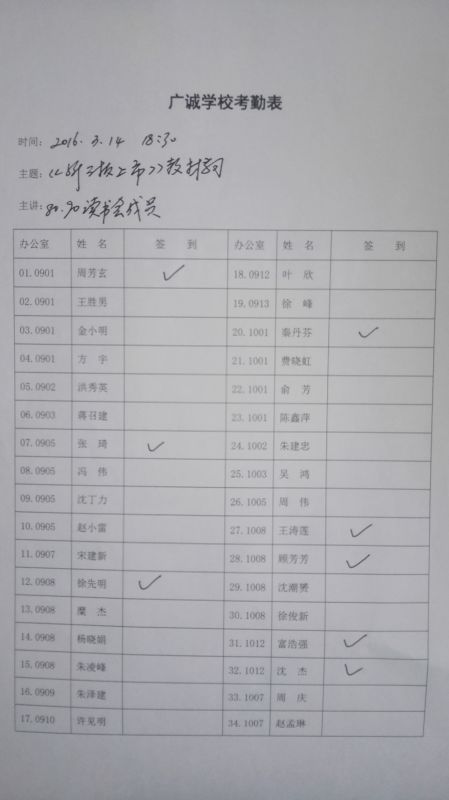 广诚学校考勤表
时间：2016.3.14 18:30
主题：《新三板上市》教材
主讲：80.90读书会成员
办公室 姓名 签到 办公室 姓名 签到
01.0901 周芳玄 ✓ 18.0912 叶欣
02.0901 王胜男 19.0913 徐峰
03.0901 金小明 20.1001 秦丹芬 ✓
04.0901 方宇 21.1001 费晓虹
05.0902 洪秀英 22.1001 俞芳
06.0903 蒋召建 23.1001 陈鑫萍
07.0905 张琦 ✓ 24.1002 朱建忠
08.0905 冯伟 25.1003 吴鸿
09.0905 沈丁力 26.1005 周伟
10.0905 赵小雷 27.1008 王涛莲 ✓
11.0907 宋建新 28.1008 顾芳芳 ✓
12.0908 徐先明 ✓ 29.1008 沈潮赟
13.0908 糜杰 30.1008 徐俊新
14.0908 杨晓娟 31.1012 富浩强 ✓
15.0908 朱凌峰 32.1012 沈杰 ✓
16.0909 朱泽建 33.1007 周庆
17.0910 许见明 34.1007 赵孟琳